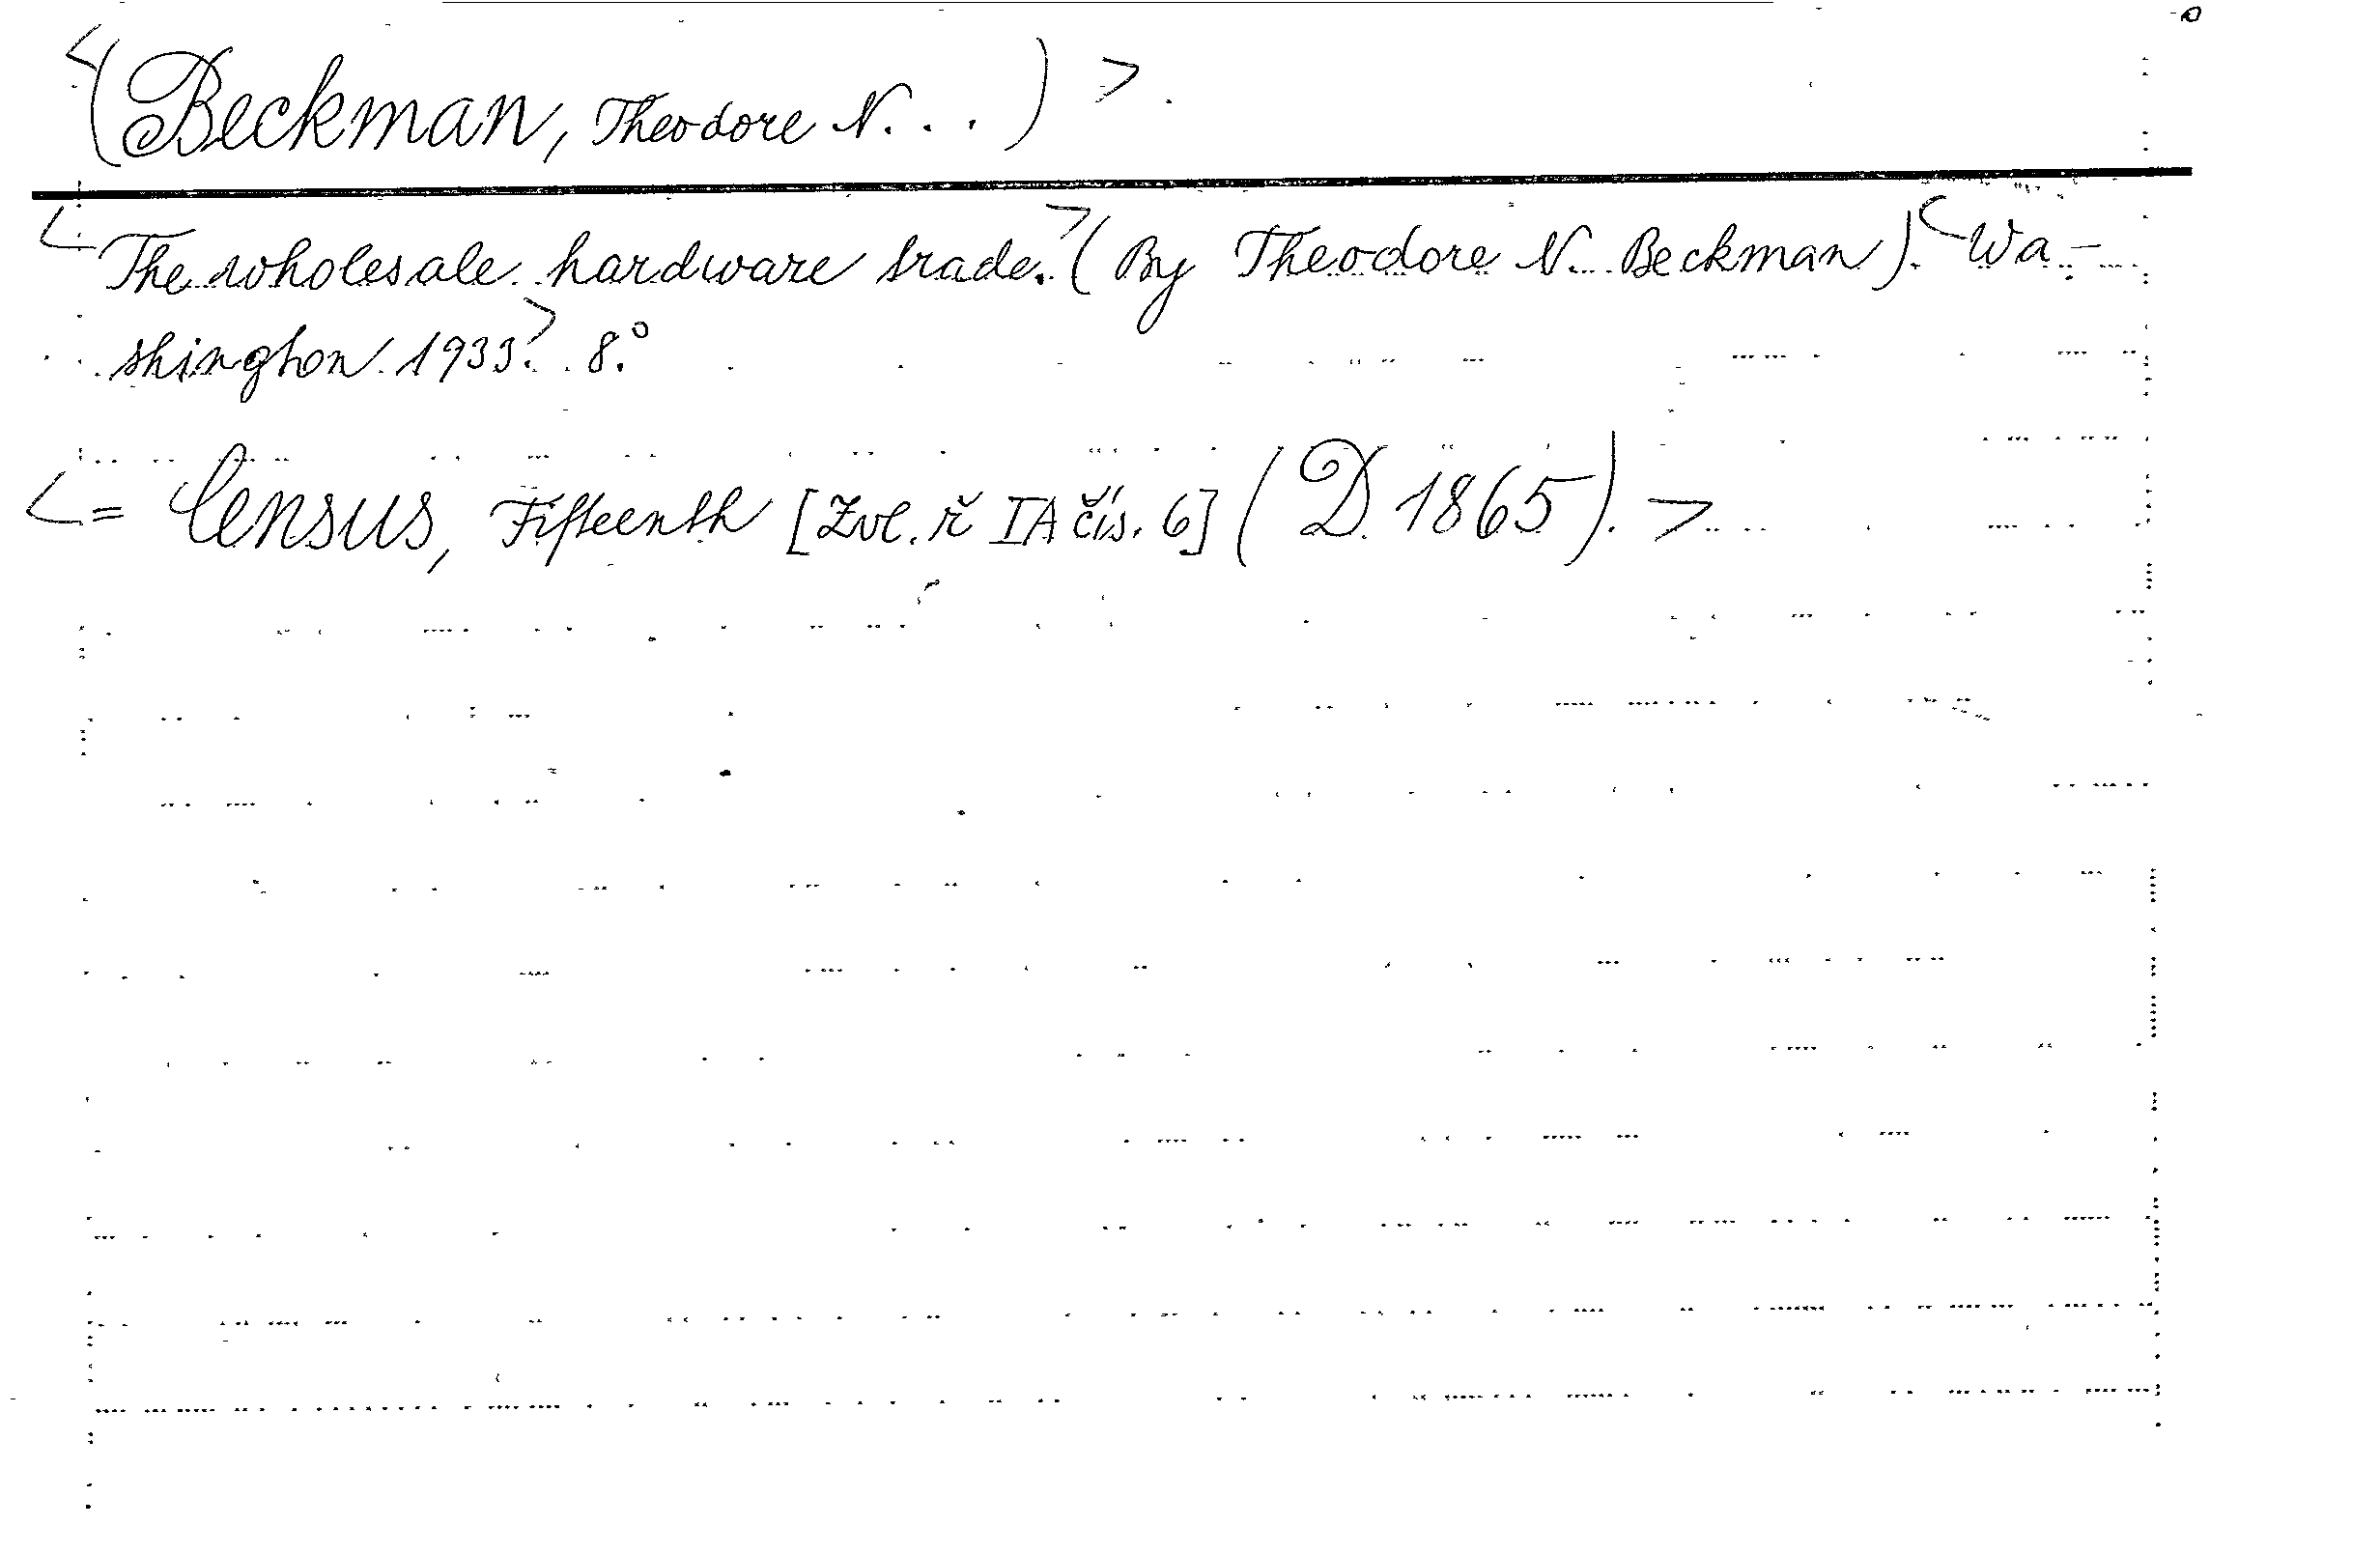 <(Beckman, Theodore N...)>.
<The wholesale hardware trade.>(By Theodore N. Beckman).<Wa-
shington 1933.> 8.°
<= Census, Fifteenth [Zvl. ř IA čís. 6] (D 1865).>